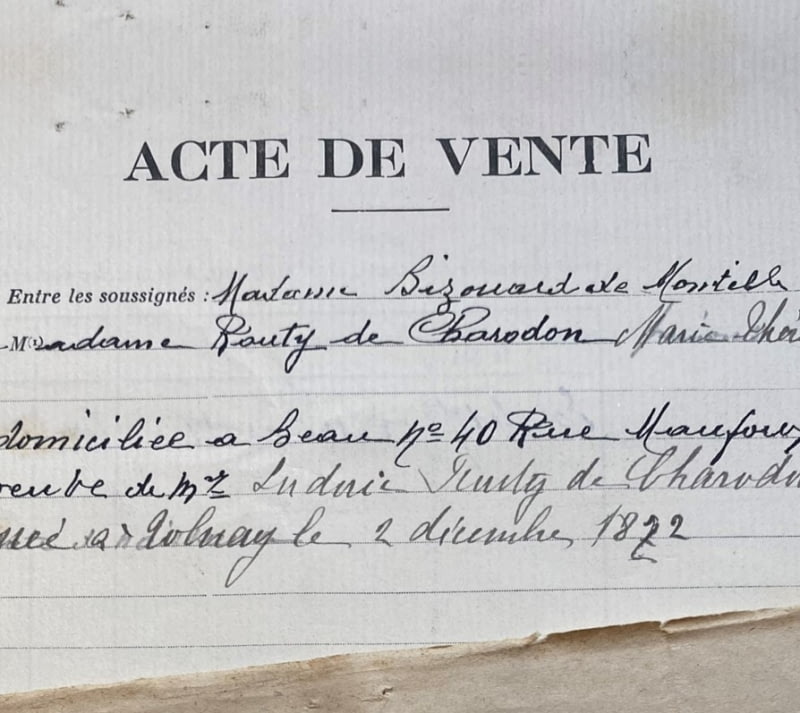 ACTE DE VENTE
Entre les soussignés : Madame Bizouard de Montille
Madame Routy de Charodon Marie Thér
domiciliée a Beau nº 40 Rue Maufoux
veuve de Mr Ludovic Routy de Charodon
née à Volnay le 2 décembre 1872